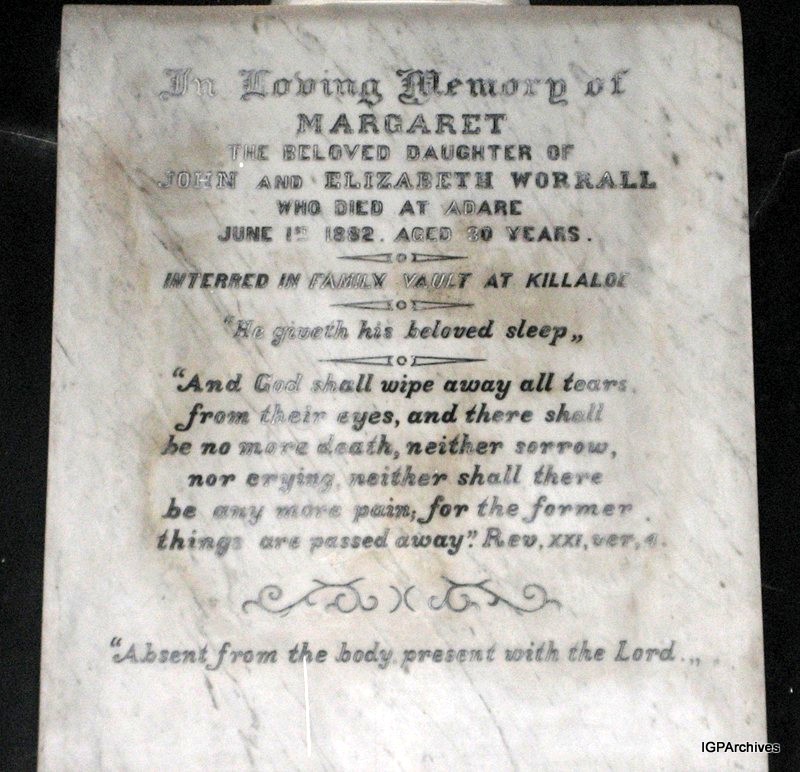 In Loving Memory of
MARGARET
THE BELOVED DAUGHTER OF
JOHN AND ELIZABETH WORRALL
WHO DIED AT ADARE
JUNE 1ST 1882. AGED 30 YEARS.
INTERRED IN FAMILY VAULT AT KILLALOE
"He giveth his beloved sleep„
"And God shall wipe away all tears
from their eyes, and there shall
be no more death, neither sorrow,
nor crying, neither shall there
be any more pain; for the former
things are passed away". Rev, XXI, ver, 4.
"Absent from the body, present with the Lord.„
IGPArchives